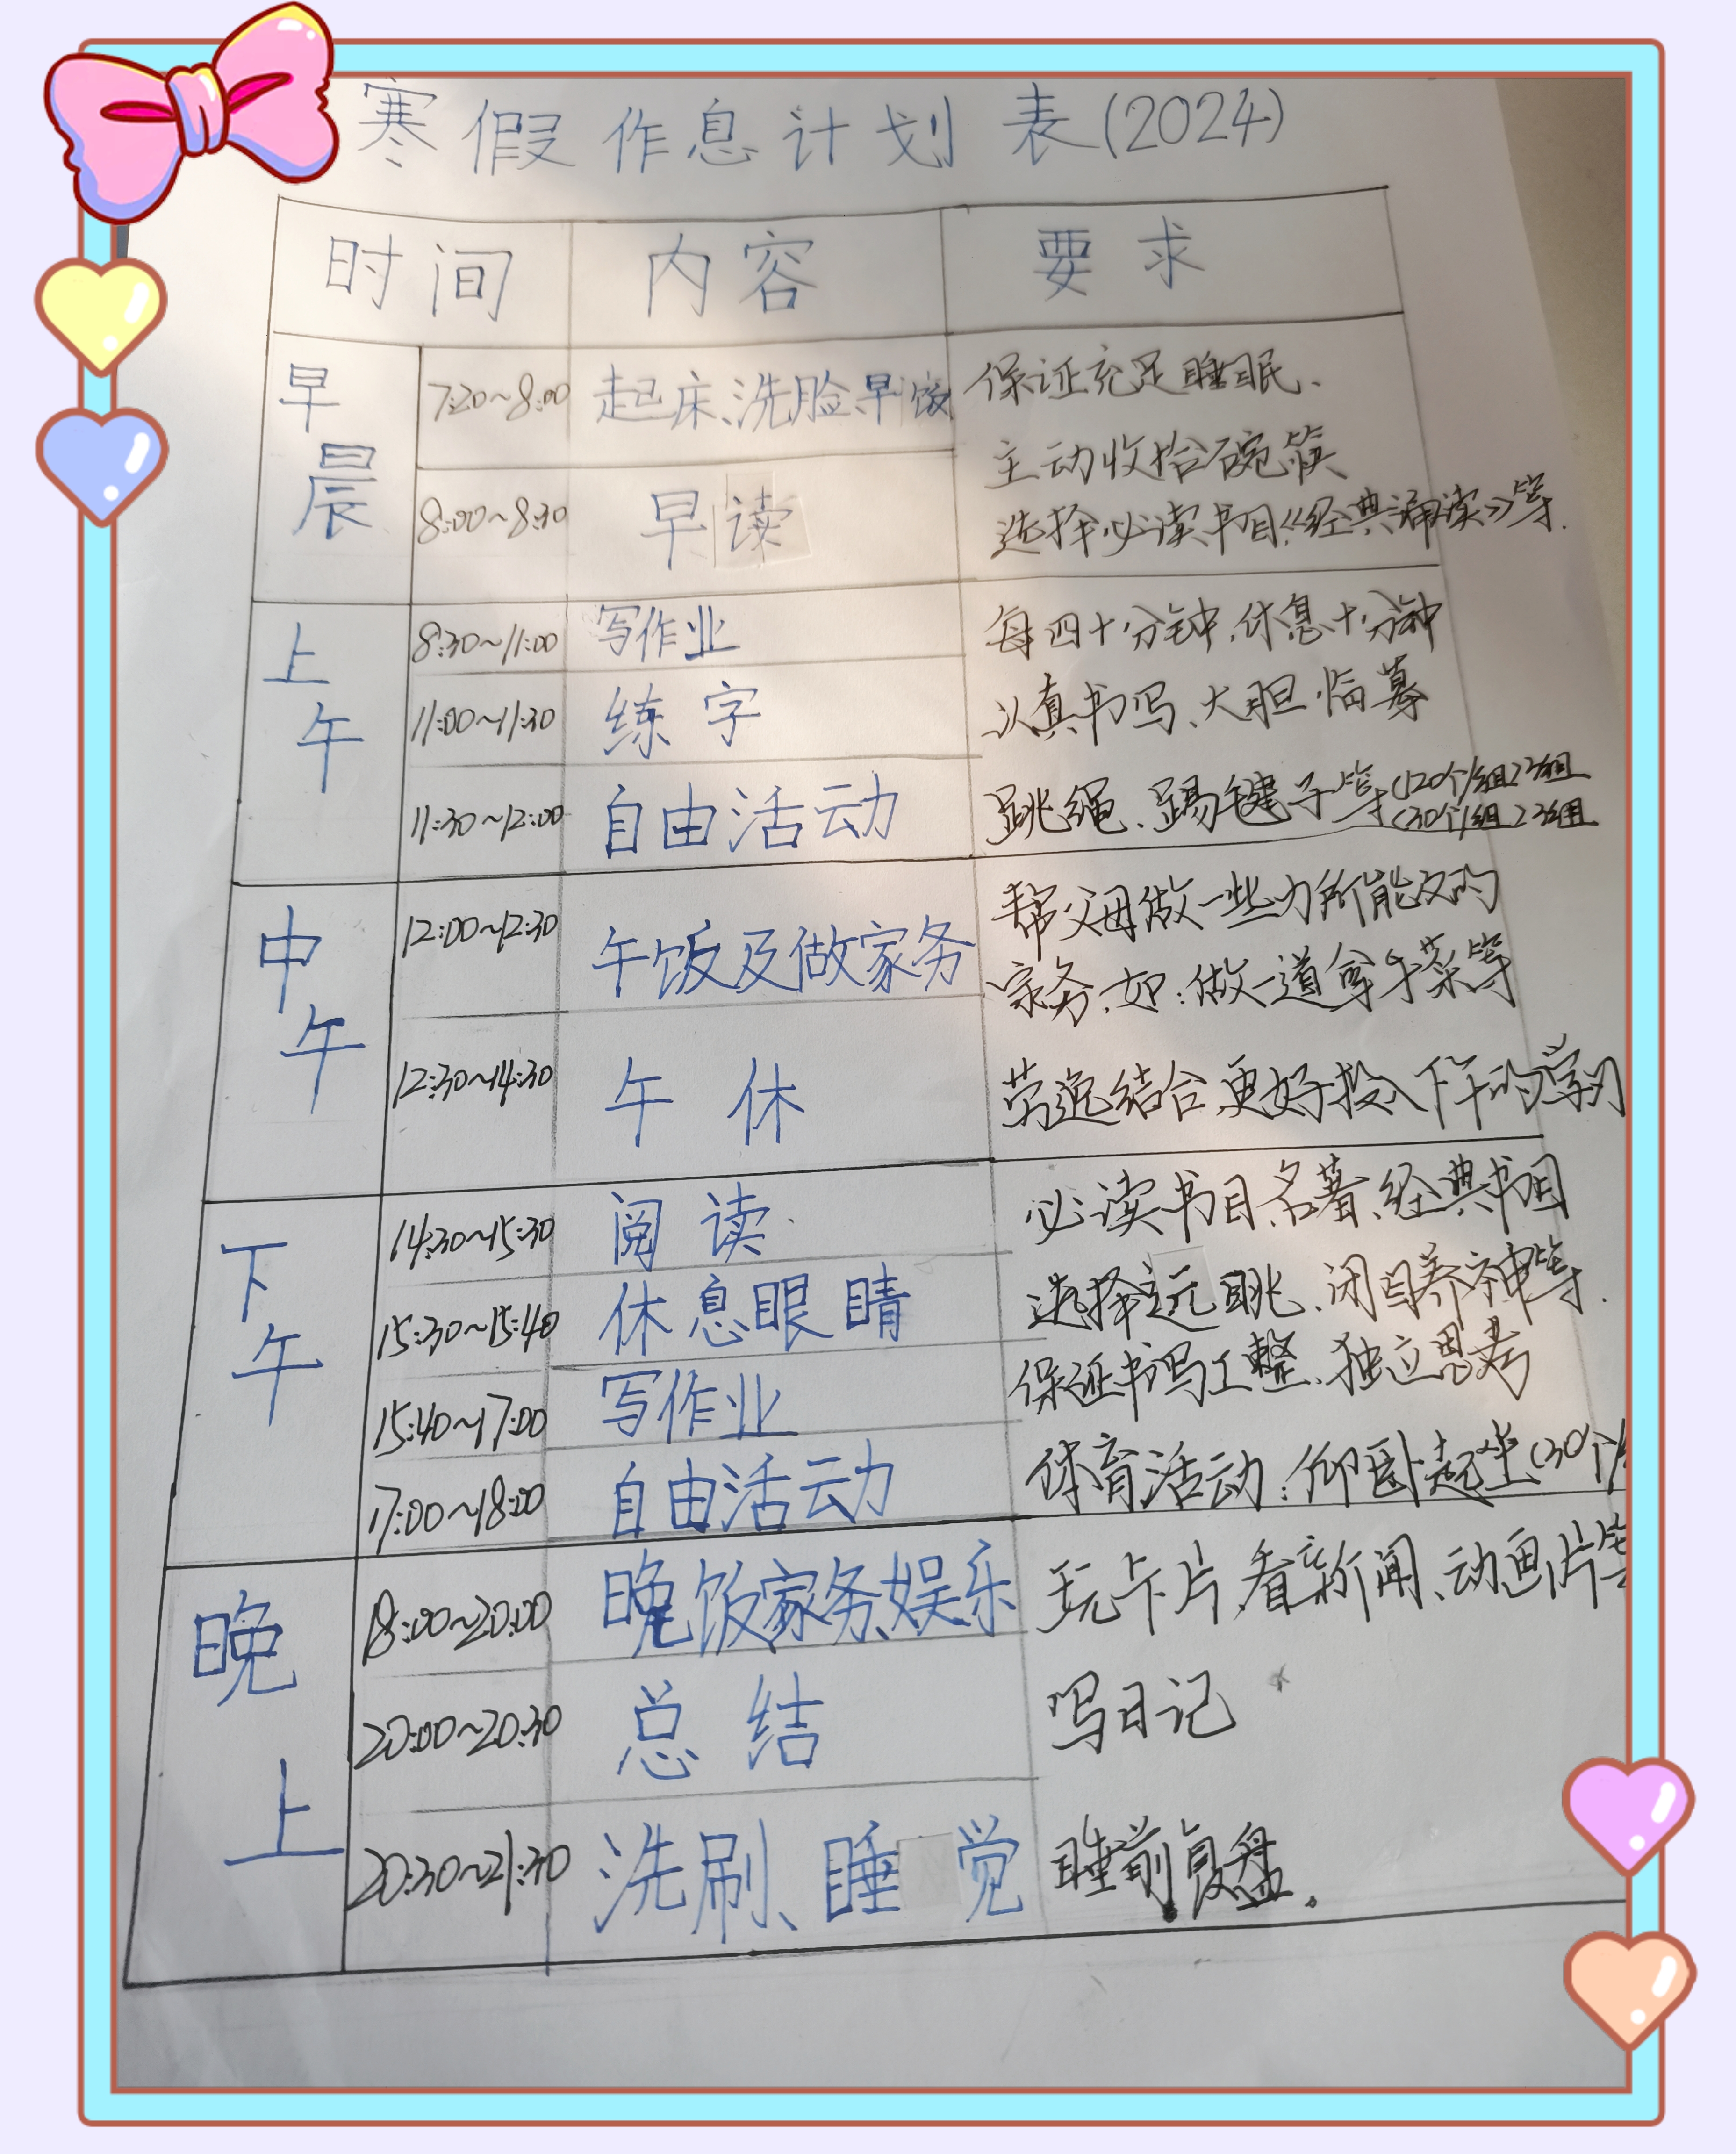 寒假作息计划表(2024)
时间 内容 要求
早晨 7:20~8:00 起床、洗脸、早饭 保证充足睡眠、
主动收拾碗筷
8:00~8:30 早读 选择必读书目《经典诵读》等.
上午 8:30~11:00 写作业 每四十分钟,休息十分钟
11:00~11:30 练字 认真书写、大胆临摹
11:30~12:00 自由活动 跳绳、踢毽子等(120个/组)3组
(30个/组)3组
中午 12:00~12:30 午饭及做家务 帮父母做一些力所能及的
家务,如:做一道拿手菜等
12:30~14:30 午休 劳逸结合,更好投入下午的学习
下午 14:30~15:30 阅读 必读书目、名著、经典书目
15:30~15:40 休息眼睛 选择远眺、闭目养神等.
15:40~17:00 写作业 保证书写工整、独立思考
17:00~18:00 自由活动 体育活动:仰卧起坐(30个/
晚上 18:00~20:00 晚饭家务、娱乐 玩卡片,看新闻、动画片等
20:00~20:30 总结 写日记
20:30~21:30 洗刷、睡觉 睡前复盘.